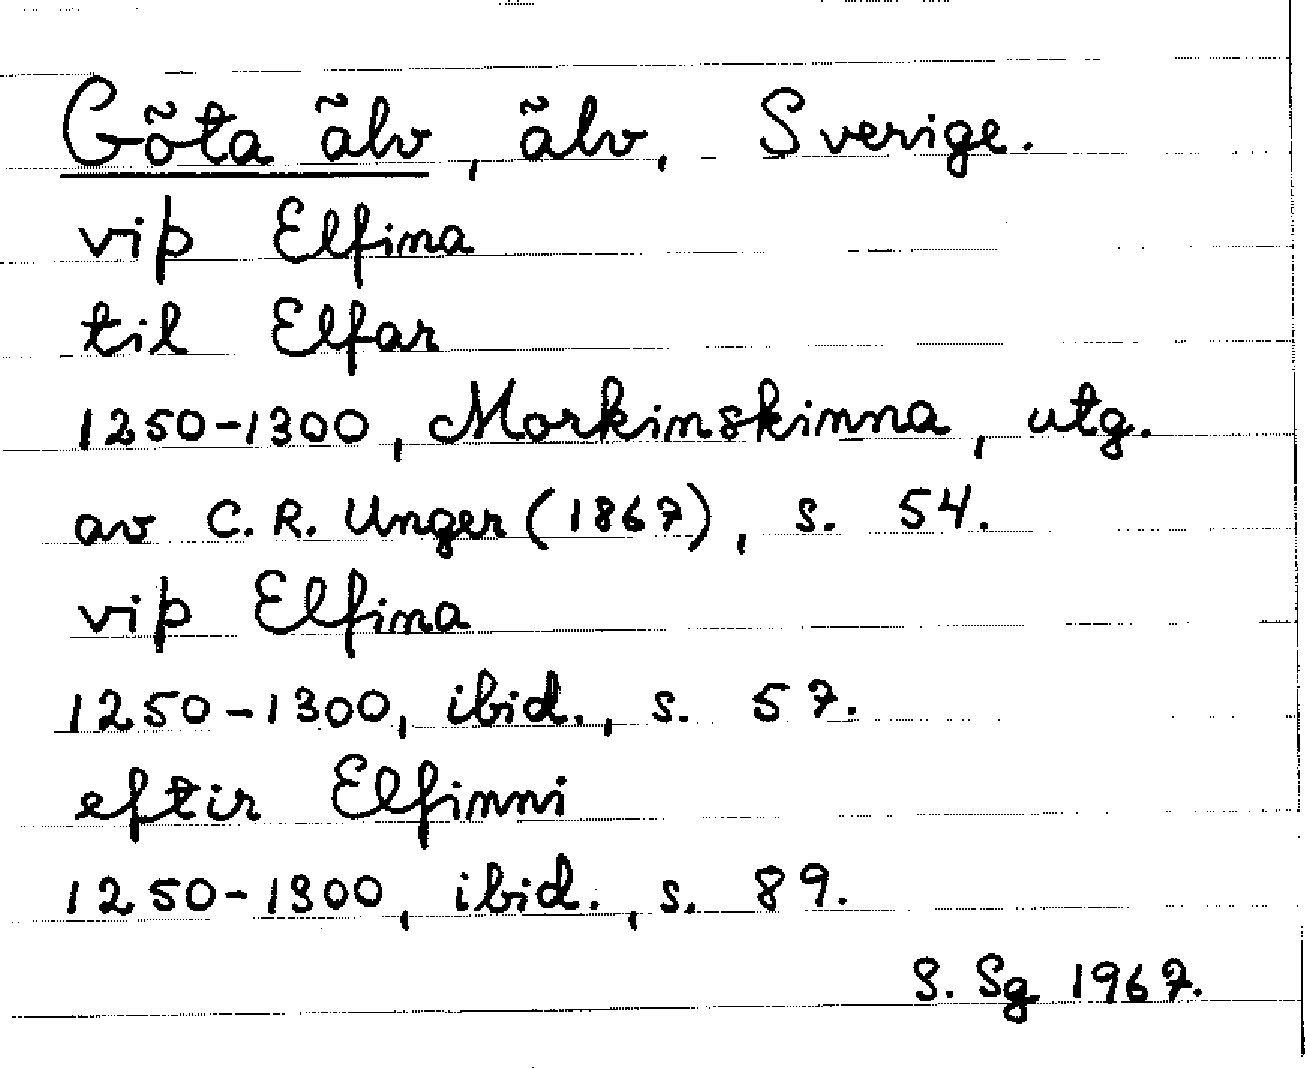 Göta älv, älv, Sverige.
viþ Elfina
til Elfar
1250-1300, Morkinskinna, utg.
av C. R. Unger (1867), s. 54.
viþ Elfina
1250-1300, ibid., s. 57.
eftir Elfinni
1250-1300, ibid., s. 89.
S. Sg 1967.